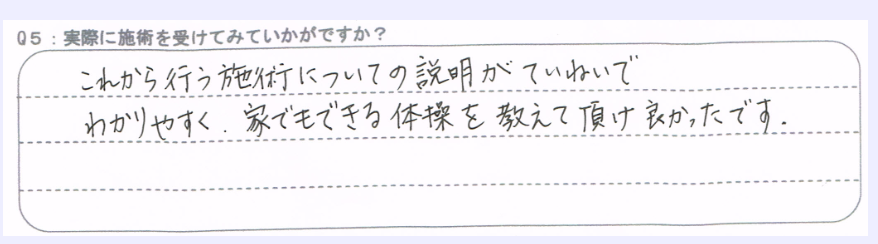 Q5：実際に施術を受けてみていかがですか？
これから行う施術についての説明がていねいで
わかりやすく．家でもできる体操を教えて頂け良かったです．